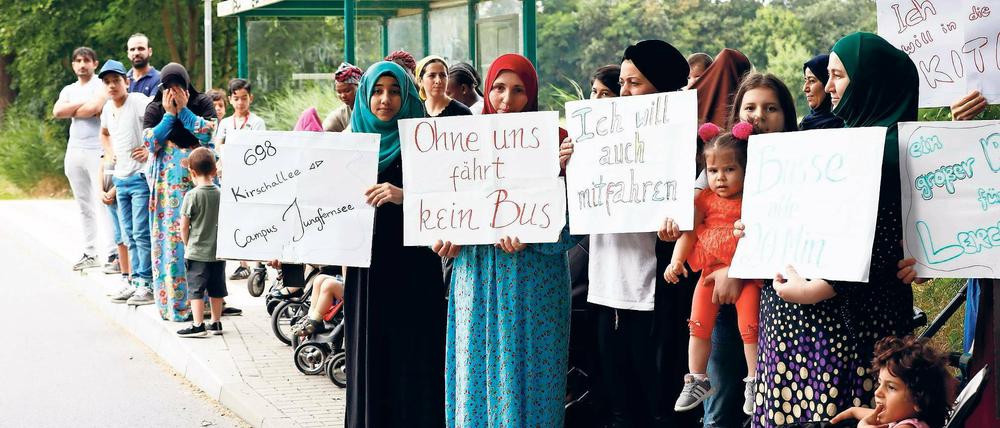 698
Kirschallee ◁▷
Campus Jungfernsee
Ohne uns
fährt
kein Bus
Ich will
auch
mitfahren
Busse
alle
20 Min
Ich
will in die
KITA
ein
großer
für